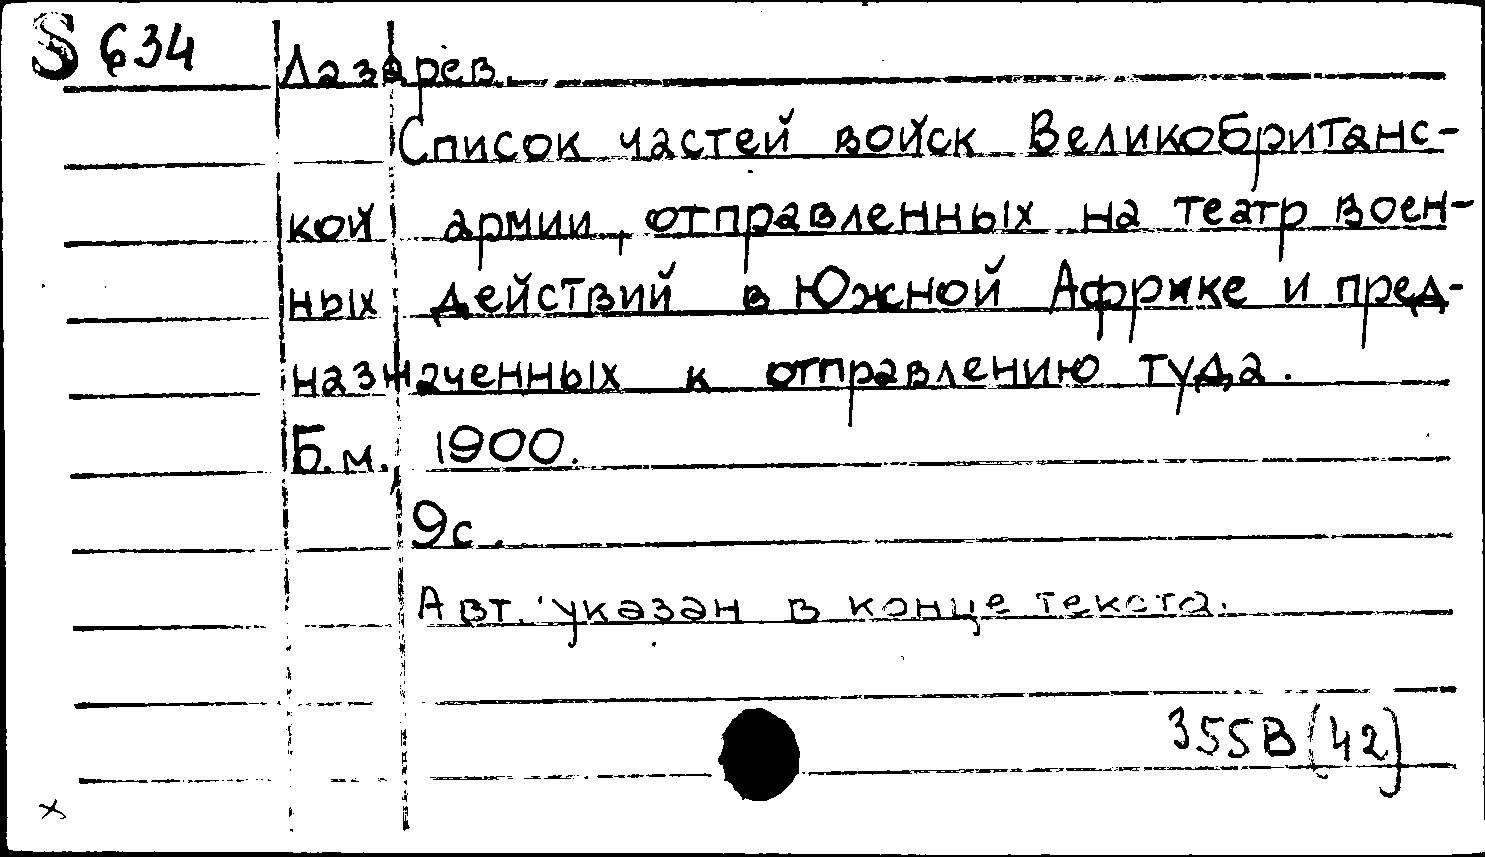 S 634
Лазарев.
Список частей войск Великобританс-
кой армии, отправленных на театр воен-
ных действий в Южной Африке и пред-
назначенных к отправлению туда.
Б.м., 1900.
9с.
Авт. указан в конце текста.
355В(42)
x